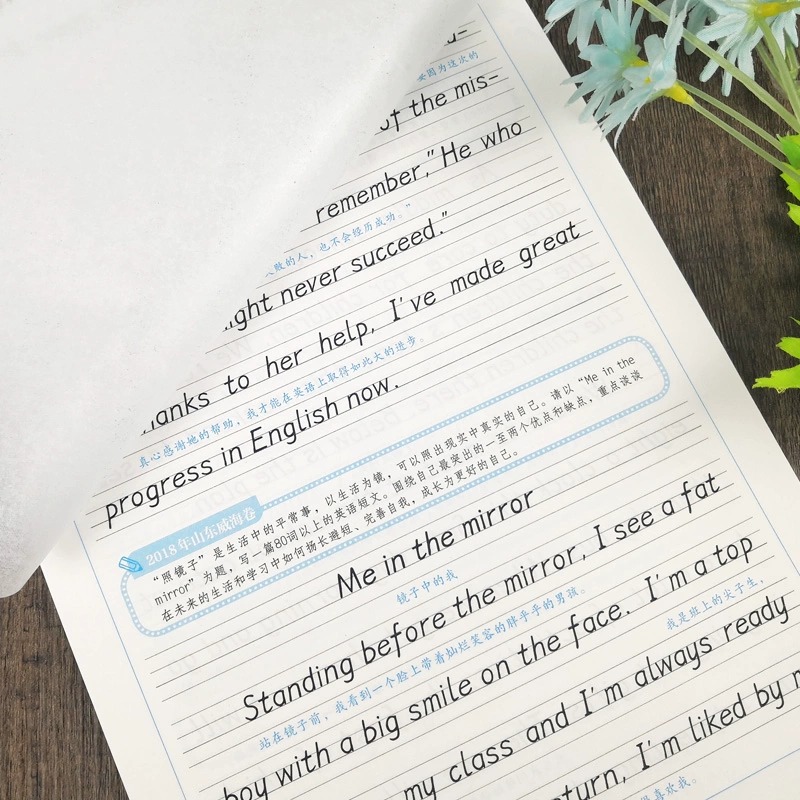 因为这次的
of the mis-
remember," He who
败的人，也不会经历成功。"
never succeed."
to her help, I've made great
真心感谢她的帮助，我才能在英语上取得如此大的进步。
progress in English now.
2018年山东威海卷
“照镜子”是生活中的平常事，以生活为镜，可以照出现实中真实的自己。请以“Me in the
mirror”为题，写一篇80词以上的英语短文。围绕自己最突出的一至两个优点和缺点，重点谈谈
在未来的生活和学习中如何扬长避短、完善自我，成长为更好的自己。
Me in the mirror
镜子中的我
Standing before the mirror, I see a fat
站在镜子前，我看到一个脸上带着灿烂笑容的胖乎乎的男孩。
boy with a big smile on the face. I'm a top
我是班上的尖子生，
my class and I'm always ready
I'm liked by
喜欢我。